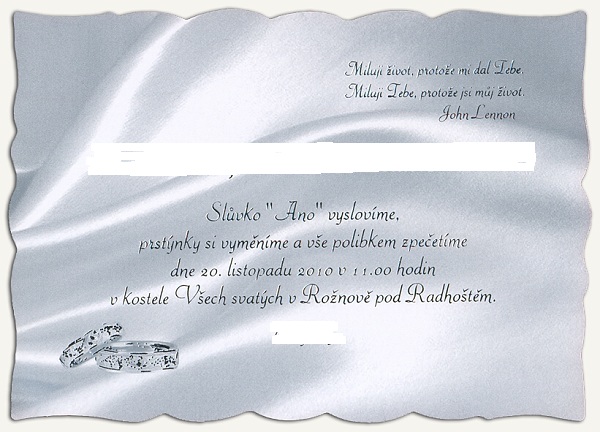 Miluji život, protože mi dal Tebe.
Miluji Tebe, protože jsi můj život.
John Lennon
Slůvko "Ano" vyslovíme,
prstýnky si vyměníme a vše polibkem zpečetíme
dne 20. listopadu 2010 v 11.00 hodin
v kostele Všech svatých v Rožnově pod Radhoštěm.